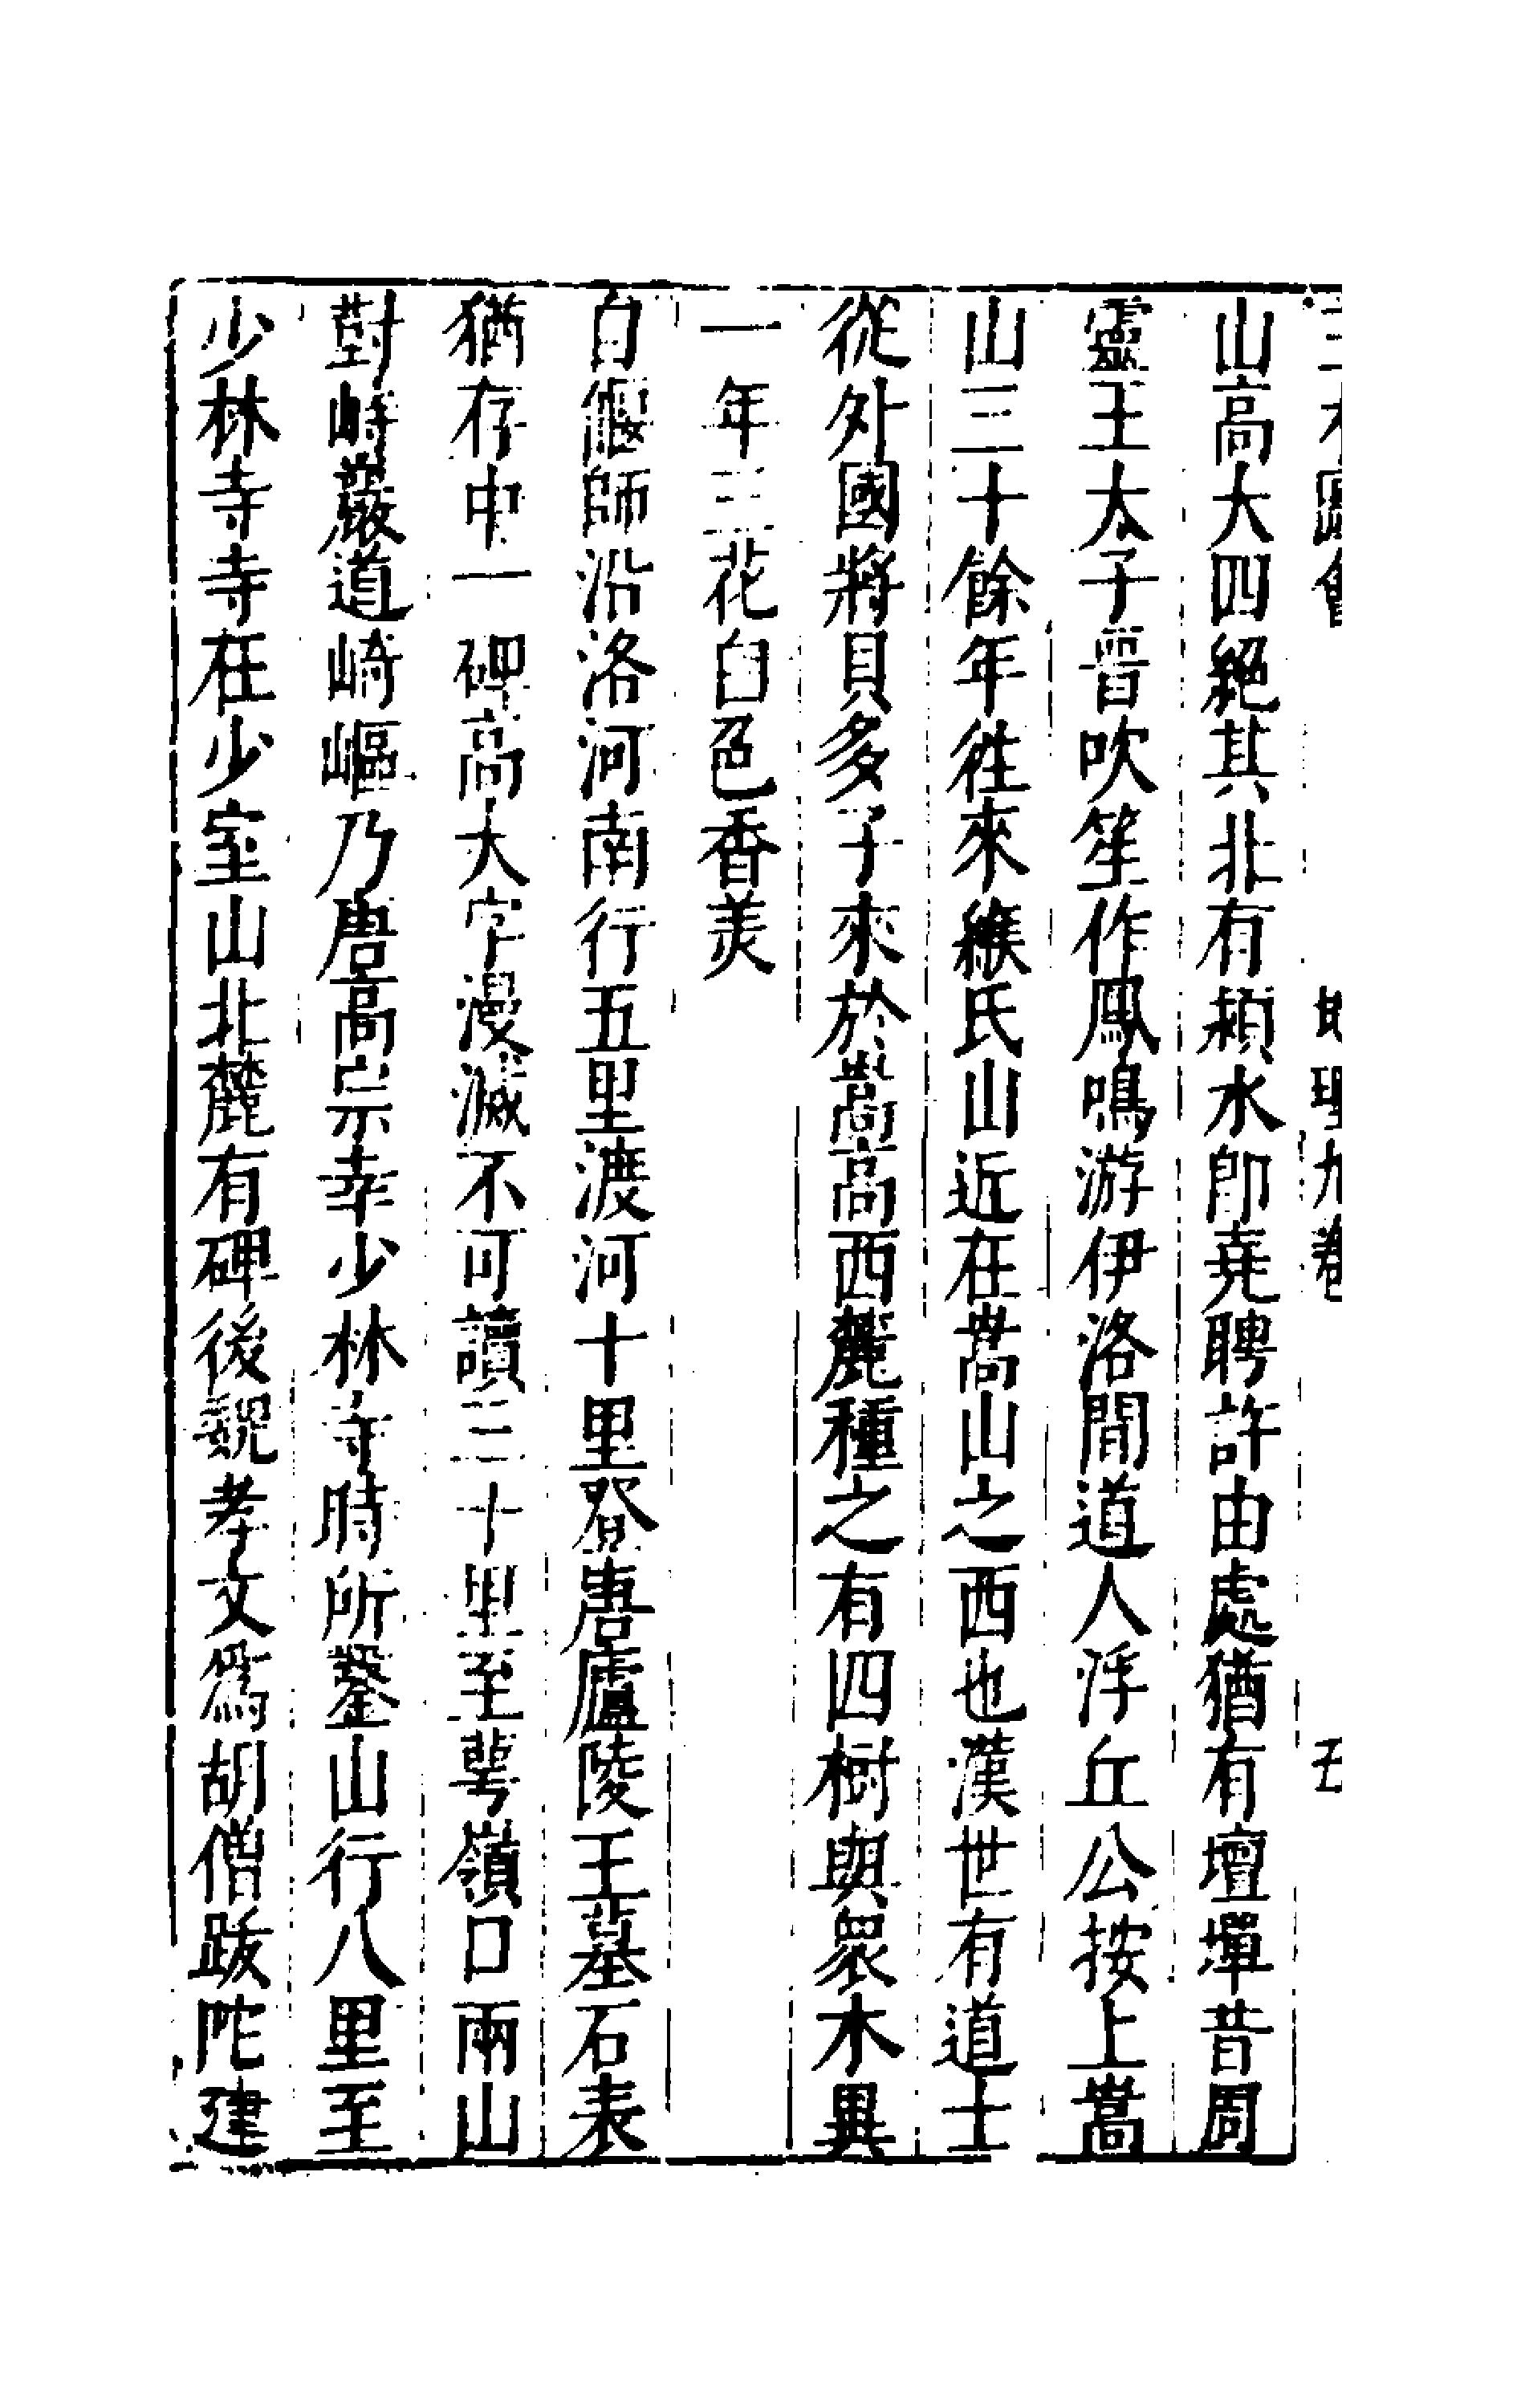 三才圖會 地理九卷 五
山高大四絕其北有潁水卽堯聘許由處猶有壇墠昔周
靈王太子晉吹笙作鳳鳴游伊洛間道人浮丘公按上嵩
山三十餘年徃來緱氏山近在嵩山之西也漢世有道士
從外國將貝多子來於嵩高西麓種之有四樹與衆木異
一年三花白色香美
自偃師沿洛河南行五里渡河十里登唐廬陵王墓石表
猶存中一碑高大字漫滅不可讀三十里至萼嶺口兩山
對峙巖道崎嶇乃唐高宗幸少林寺時所鑿山行八里至
少林寺寺在少室山北麓有碑後魏孝文爲胡僧跋陀建